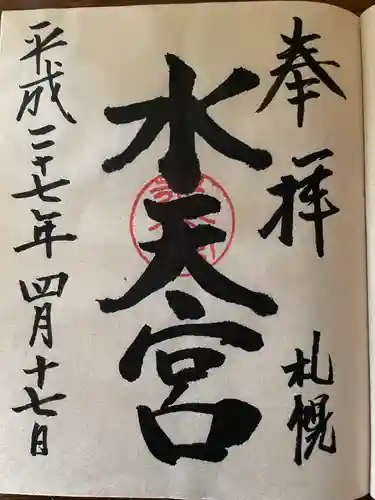 奉拝
札幌
水天宮
平成二十七年四月十七日